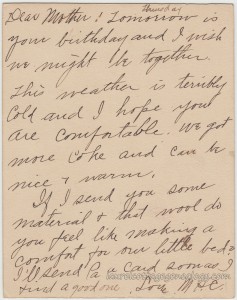 Thursday
Dear Mother! Tomorrow is
your birthday and I wish
we might be together.
This weather is terribly
cold and I hope you
are comfortable. We got
more coke and can be
nice & warm.
If I send you some
material & that wool do
you feel like making a
comfort for our little bed?
I'll send a card soon as I
find a good one. Love M.H.C.